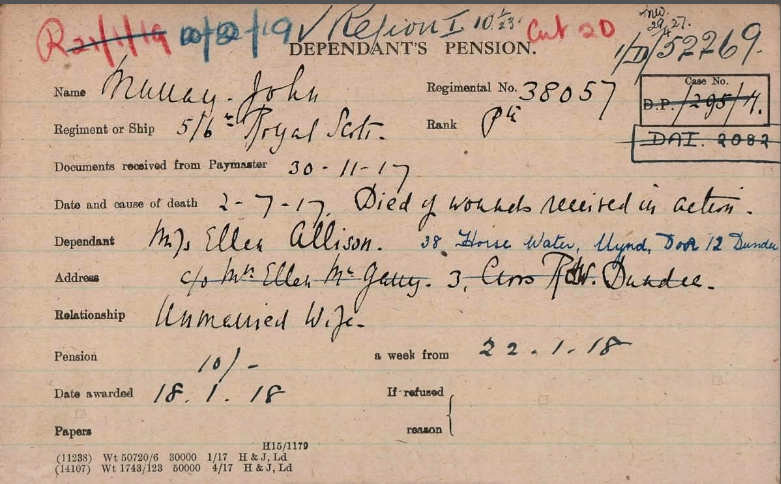 R 21/1/19 10/30/19 ✓ Region I 10 1/23 Cut 20 MW. 29/4/27.
DEPENDANT'S PENSION. 1/D/52269.
Name Murray - John Regimental No. 38057 Case No. D.P. /295/4.
Regiment or Ship 5/6th Royal Scots. Rank Pte DAI. 2082
Documents received from Paymaster 30-11-17
Date and cause of death 2-7-17. Died of wounds received in action.
Dependant M/s Ellen Allison. 38 Horse Water, Wynd, Door 12 Dundee
Address c/o Mrs Ellen Mc 3, Cross Row. Dundee.
Relationship Unmarried Wife.
Pension 10/- a week from 22.1.18
Date awarded 18.1.18 If refused
Papers reason
H15/1179
(11238) Wt 50720/6 30000 1/17 H & J, Ld
(14107) Wt 1743/123 50000 4/17 H & J, Ld